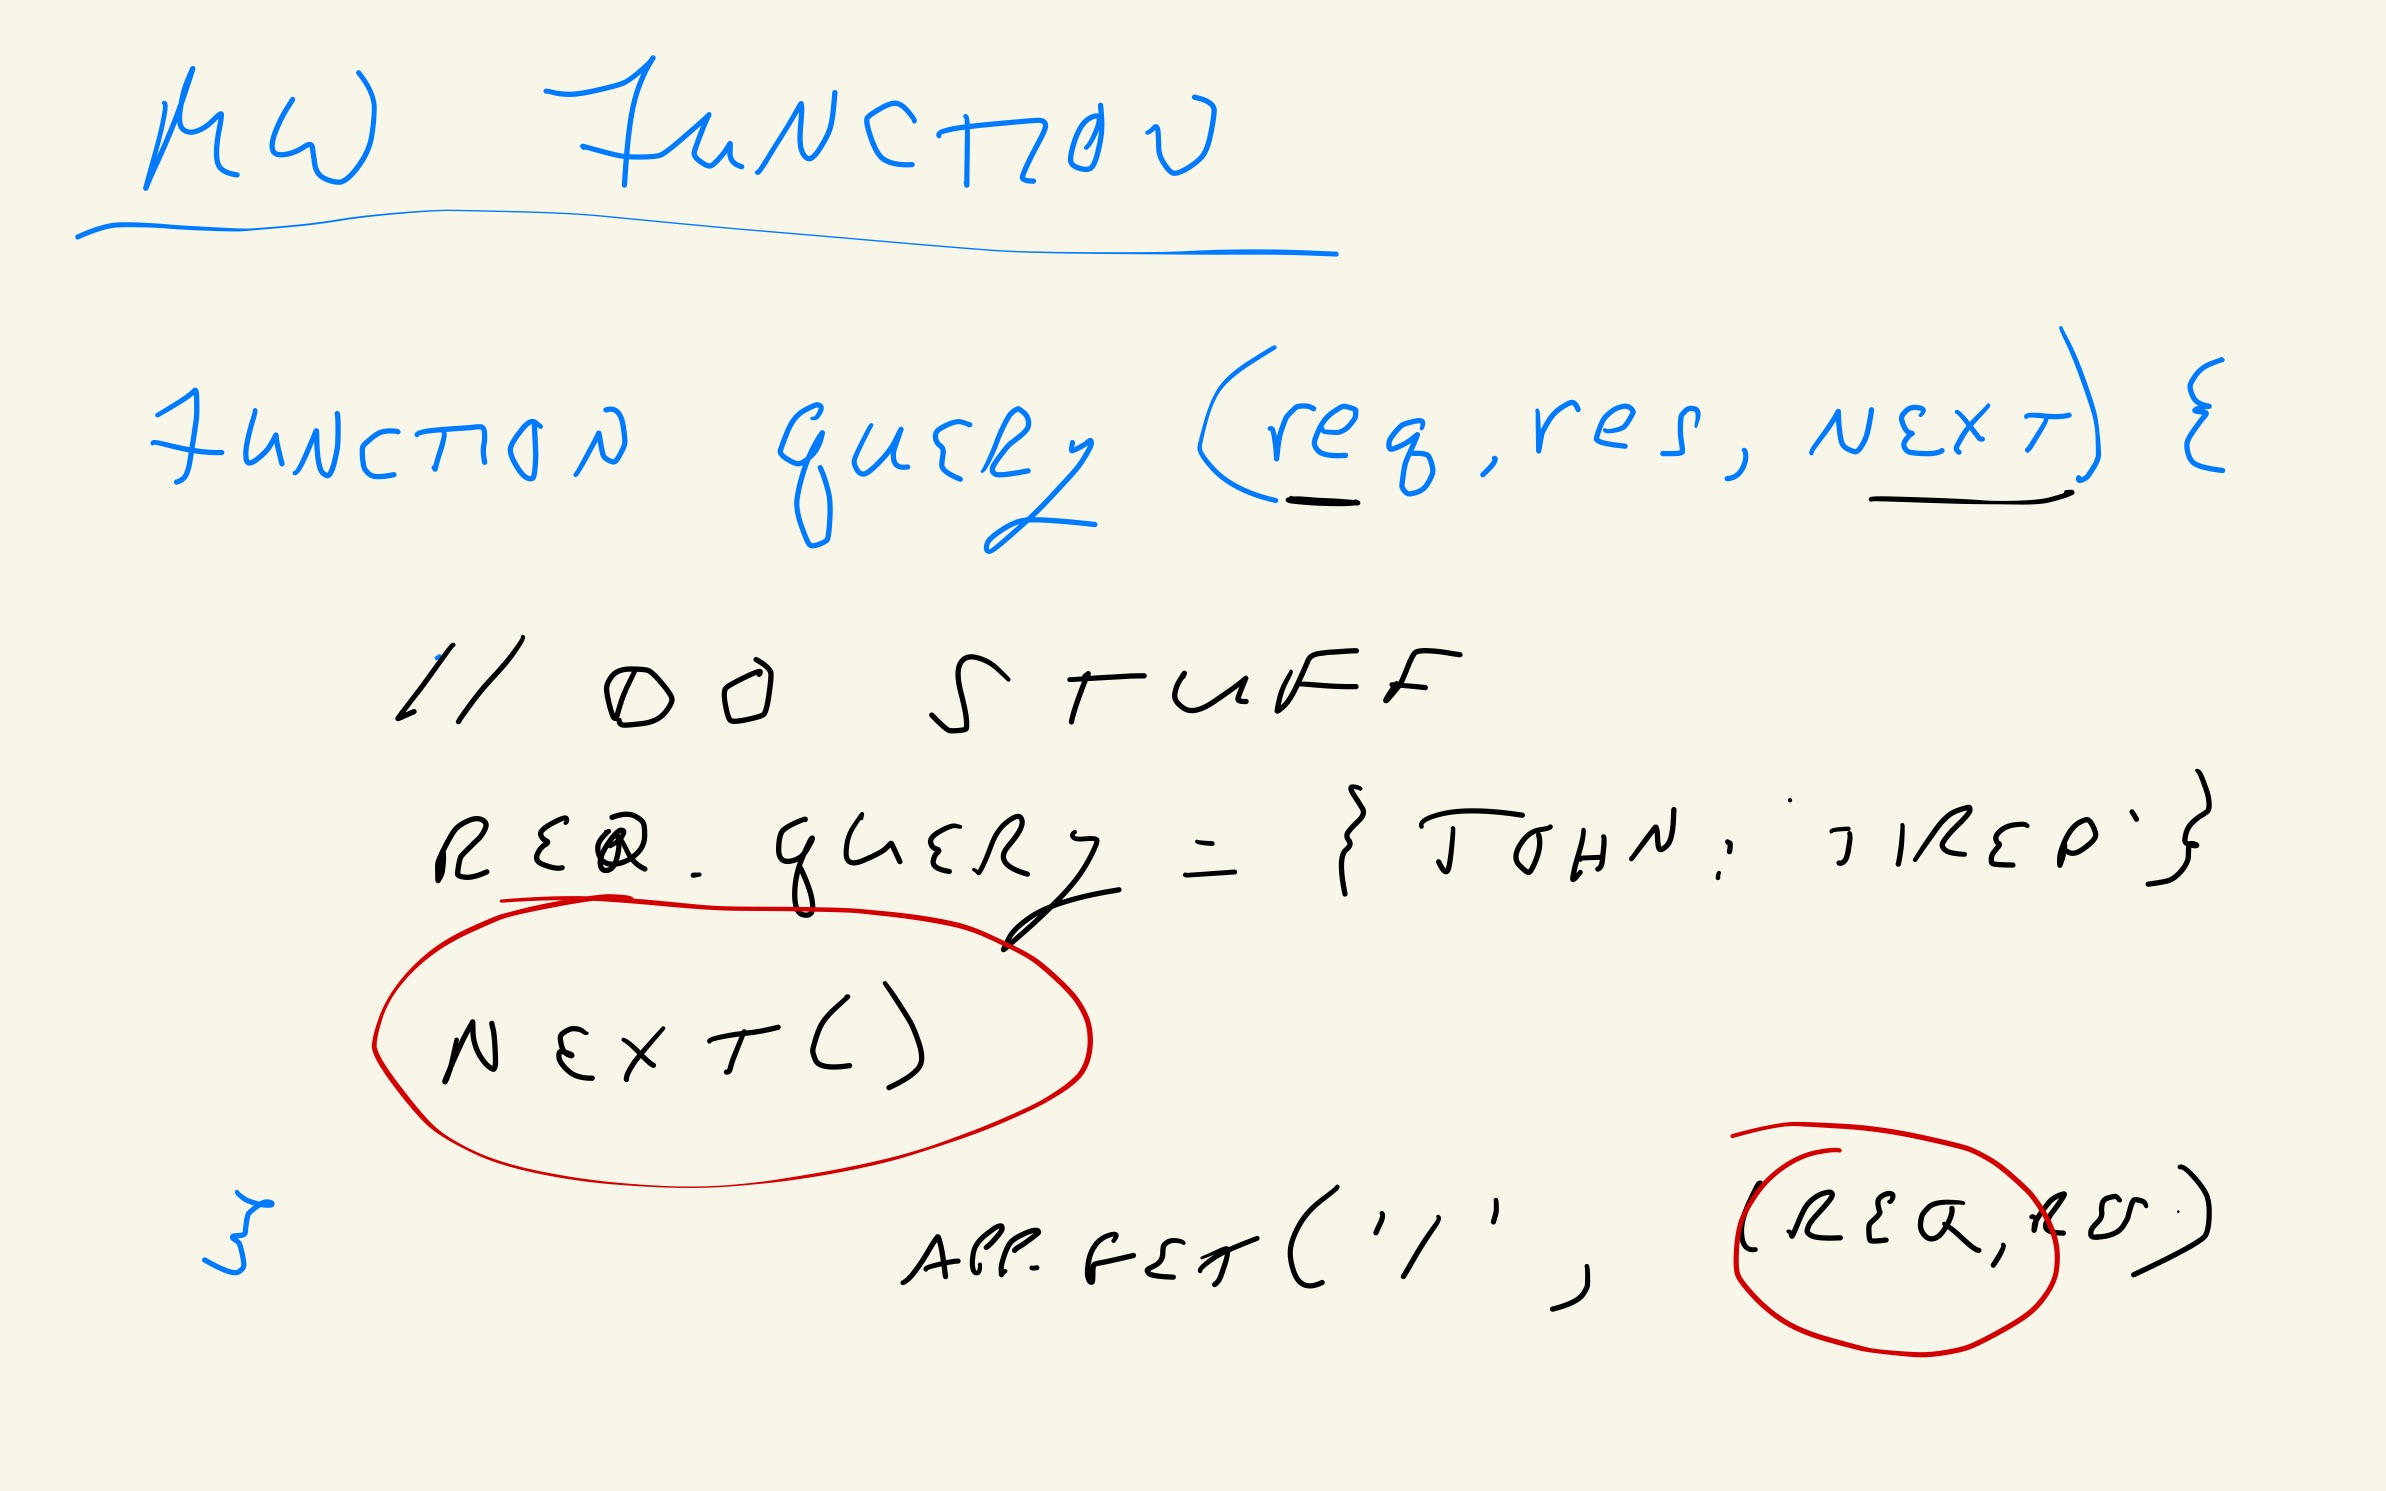 MW FUNCTION
FUNCTION query (req, res, NEXT) {
// DO STUFF
REQ. query = { JOHN: 'TIRED' }
NEXT()
} APP. GET('/', (REQ, RES)